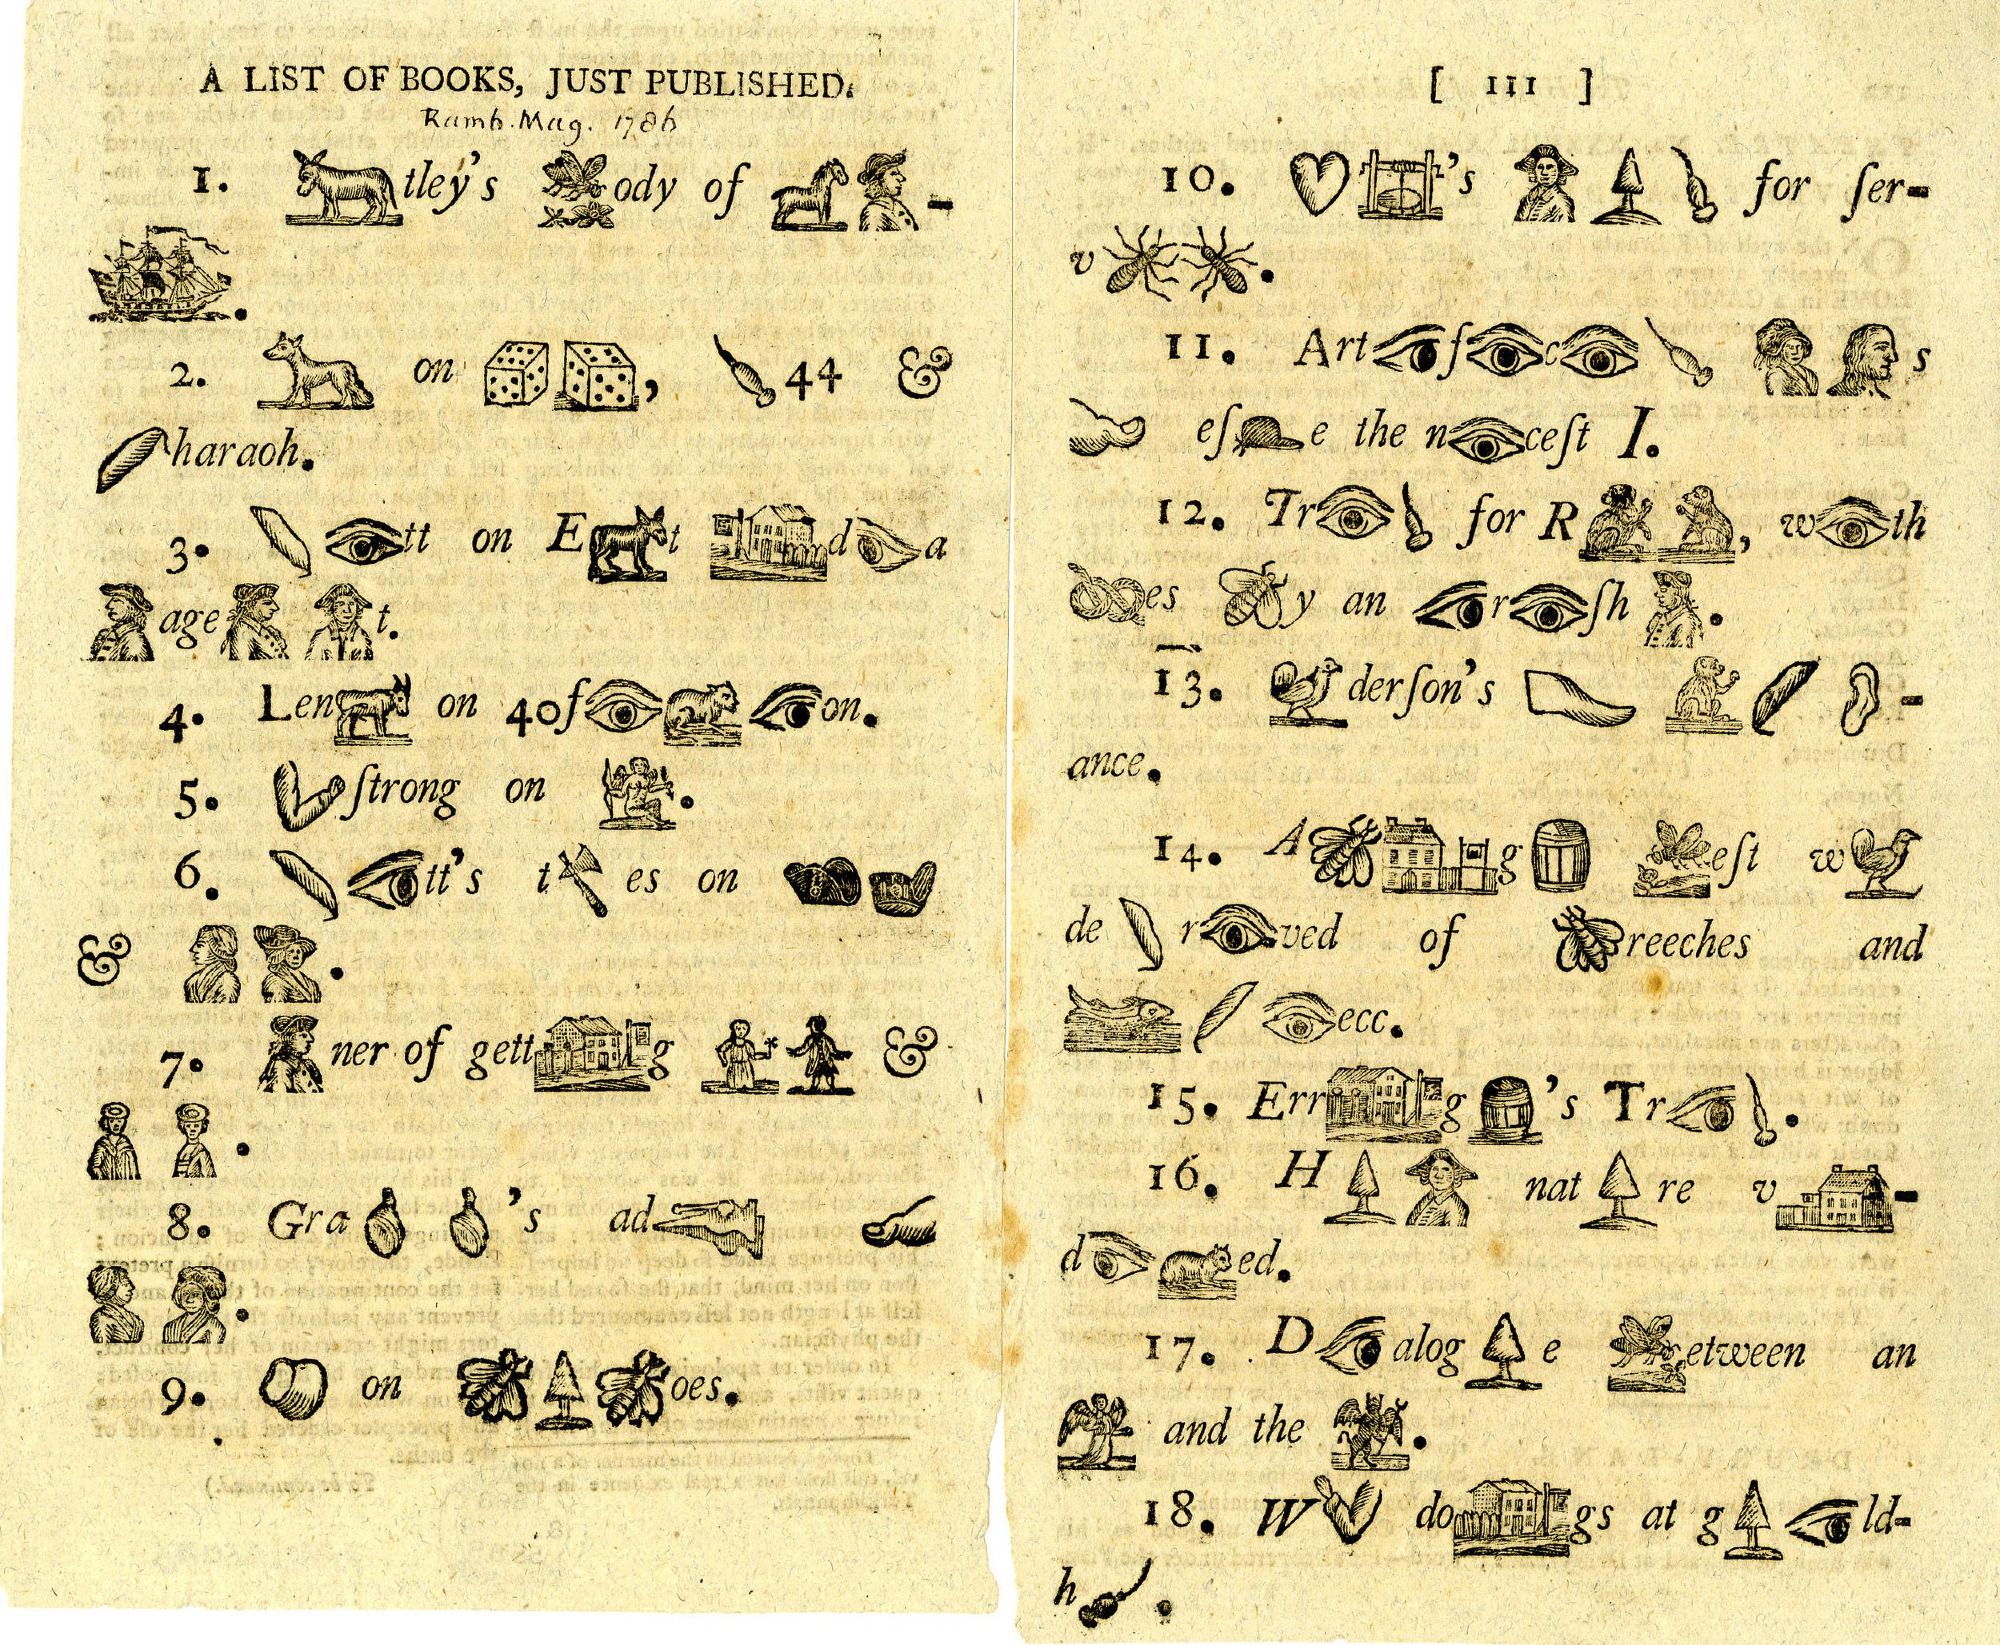 A LIST OF BOOKS, JUST PUBLISHED.
Ramb. Mag. 1786
1. tley's ody of -
.
2. on , 44 &
haraoh.
3. tt on E t d a
age t.
4. Len on 40ſ on.
5. ſtrong on .
6. tt's t es on
& .
7. ner of gett g &
.
8. Gra 's ad
.
9. on oes.
[ 111 ]
10. 's for ſer-
v .
11. Art f c s
eſ e the n ceſt I.
12. Tr for R , w th
es y an r ſh .
13. derſon's -
ance.
14. A g eſt w
de r ved of reeches and
ecc.
15. Err g 's Tr .
16. H nat re v -
d ed.
17. D alog e etween an
and the .
18. W do gs at g ld-
h .